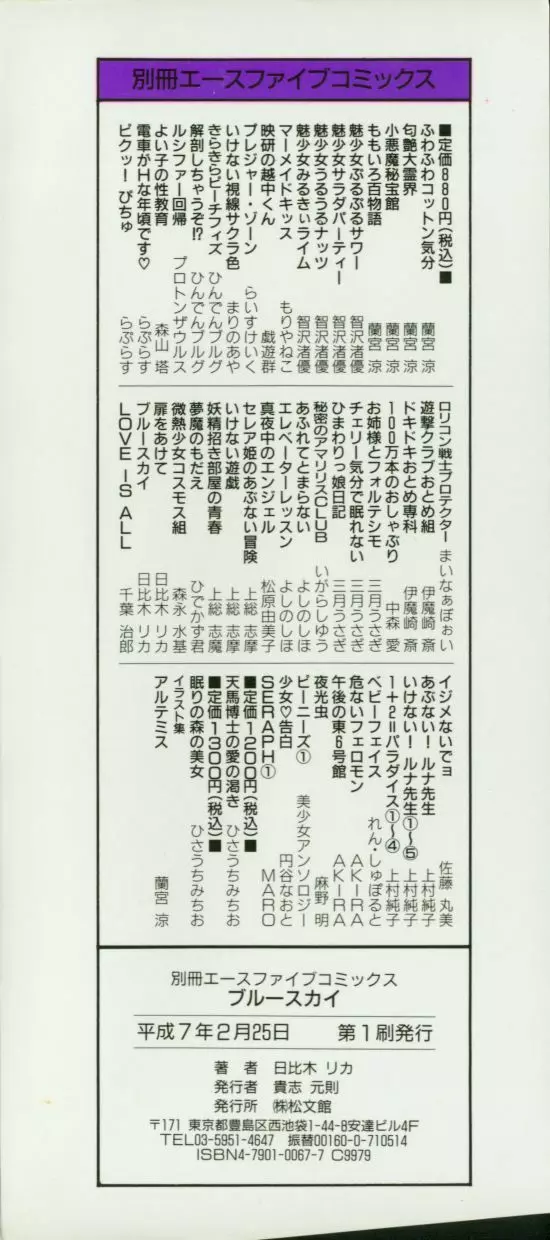 別冊エースファイブコミックス
■定価880円(税込)■
ふわふわコットン気分 蘭宮 涼
匂艶大霊界 蘭宮 涼
小悪魔秘宝館 蘭宮 涼
ももいろ百物語 蘭宮 涼
魅少女ぷるぷるサワー 智沢渚優
魅少女サラダパーティー 智沢渚優
魅少女うるうるナッツ 智沢渚優
魅少女みるきぃライム 智沢渚優
マーメイドキッス もりやねこ
映研の越中くん 戯遊群
プレジャー・ゾーン らいすけいく
いけない視線サクラ色 まりのあや
きらきらピーチフィズ ひんでんブルグ
解剖しちゃうぞ!? ひんでんブルグ
ルシファー回帰 プロトンザウルス
よい子の性教育 森山 塔
電車がHな年頃です♡ らぷらす
ピクッ! ぴちゅ らぷらす
ロリコン戦士プロテクター まいなぁぼぉい
遊撃クラブおとめ組 伊魔崎 斎
ドキドキおとめ専科 伊魔崎 斎
100万本のおしゃぶり 中森 愛
お姉様とフォルテシモ 三月うさぎ
チェリー気分で眠れない 三月うさぎ
ひまわりっ娘日記 三月うさぎ
秘密のアマリリスCLUB いがらしゆう
あふれてとまらない よしのしほ
エレベーターレッスン よしのしほ
真夜中のエンジェル 松原由美子
セレア姫のあぶない冒険 上総 志摩
いけない遊戯 上総 志摩
妖精招き部屋の青春 上総 志魔
夢魔のもだえ ひでかず君
微熱少女コスモス組 森永 水基
扉をあけて 日比木 リカ
ブルースカイ 日比木 リカ
LOVE IS ALL 千葉 治郎
イジメないでョ 佐藤 丸美
あぶない!ルナ先生 上村純子
いけない!ルナ先生①〜⑤ 上村純子
1+2=パラダイス①〜④ 上村純子
ベビーフェイス れん・しゅぽると
危ないフェロモン AKIRA
午後の東6号館 AKIRA
夜光虫 麻野 明
ビーニーズ① 美少女アンソロジー
少女♡告白 円谷なおと
SERAPH① MARO
■定価1200円(税込)■
天馬博士の愛の渇き ひさうちみちお
■定価1300円(税込)■
眠りの森の美女 ひさうちみちお
イラスト集
アルテミス 蘭宮 涼
別冊エースファイブコミックス
ブルースカイ
平成7年2月25日 第1刷発行
著 者 日比木 リカ
発行者 貴志 元則
発行所 ㈱松文館
〒171 東京都豊島区西池袋1-44-8安達ビル4F
TEL03-5951-4647 振替00160-0-710514
ISBN4-7901-0067-7 C9979